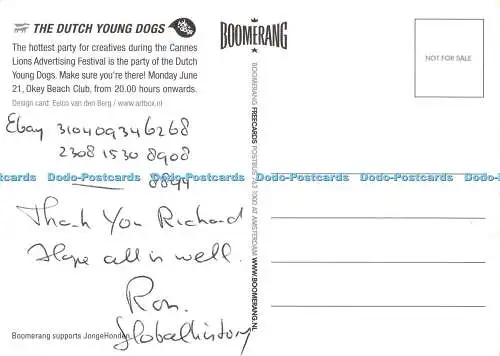 THE DUTCH YOUNG DOGS
The hottest party for creatives during the Cannes
Lions Advertising Festival is the party of the Dutch
Young Dogs. Make sure you're there! Monday June
21, Okey Beach Club, from 20.00 hours onwards.
Design card: Eelco van den Berg / www.artbox.nl
Ebay 310409346268
2308 1530 8908
8899
Thank You Richard
Hope all is well.
Ron.
Globalhistory
Boomerang supports JongeHonden
BOOMERANG
BOOMERANG FREECARDS POSTBUS
1000 AT AMSTERDAM WWW.BOOMERANG.NL
NOT FOR SALE
Dodo-Postcards Dodo-Postcards Dodo-Postcards Dodo-Postcards Dodo-Postcards